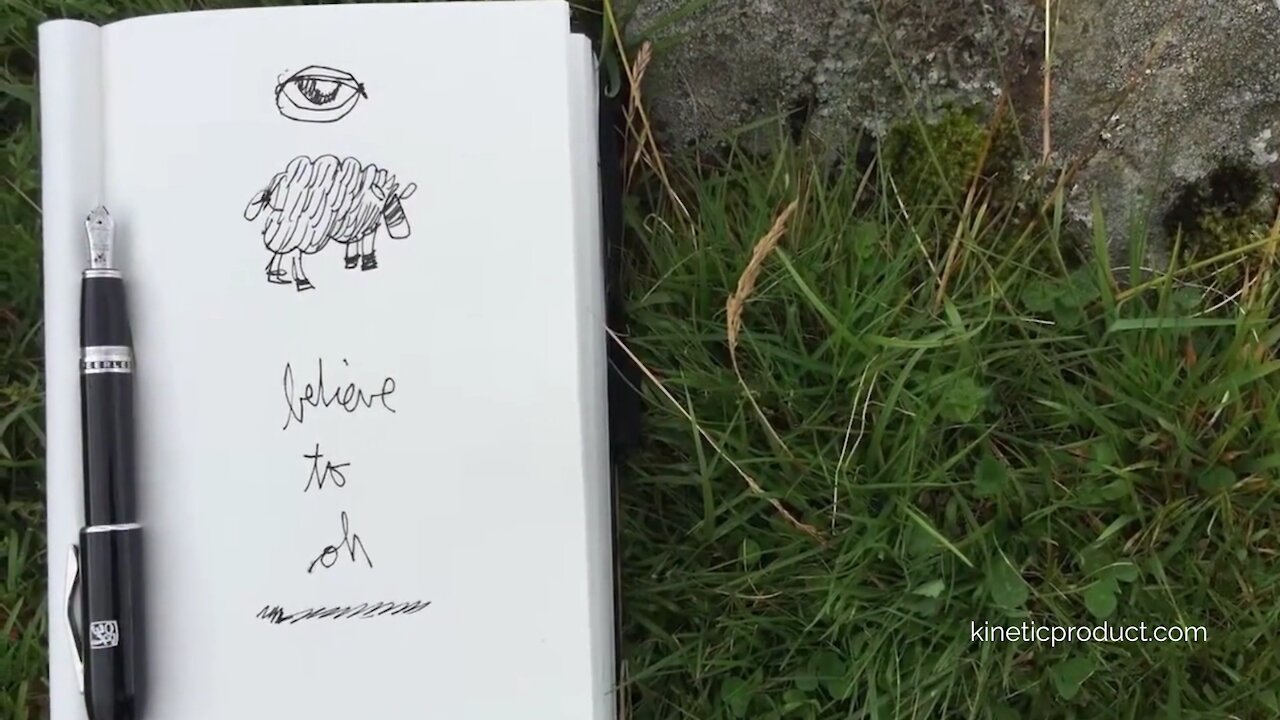 believe
to
oh
kineticproduct.com